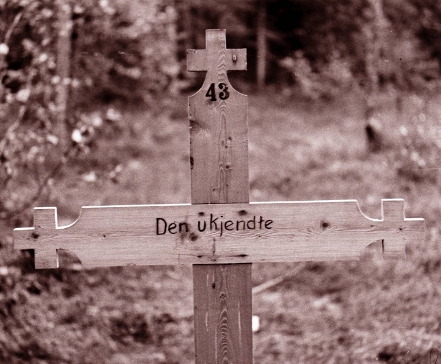 43
Den ukjendte